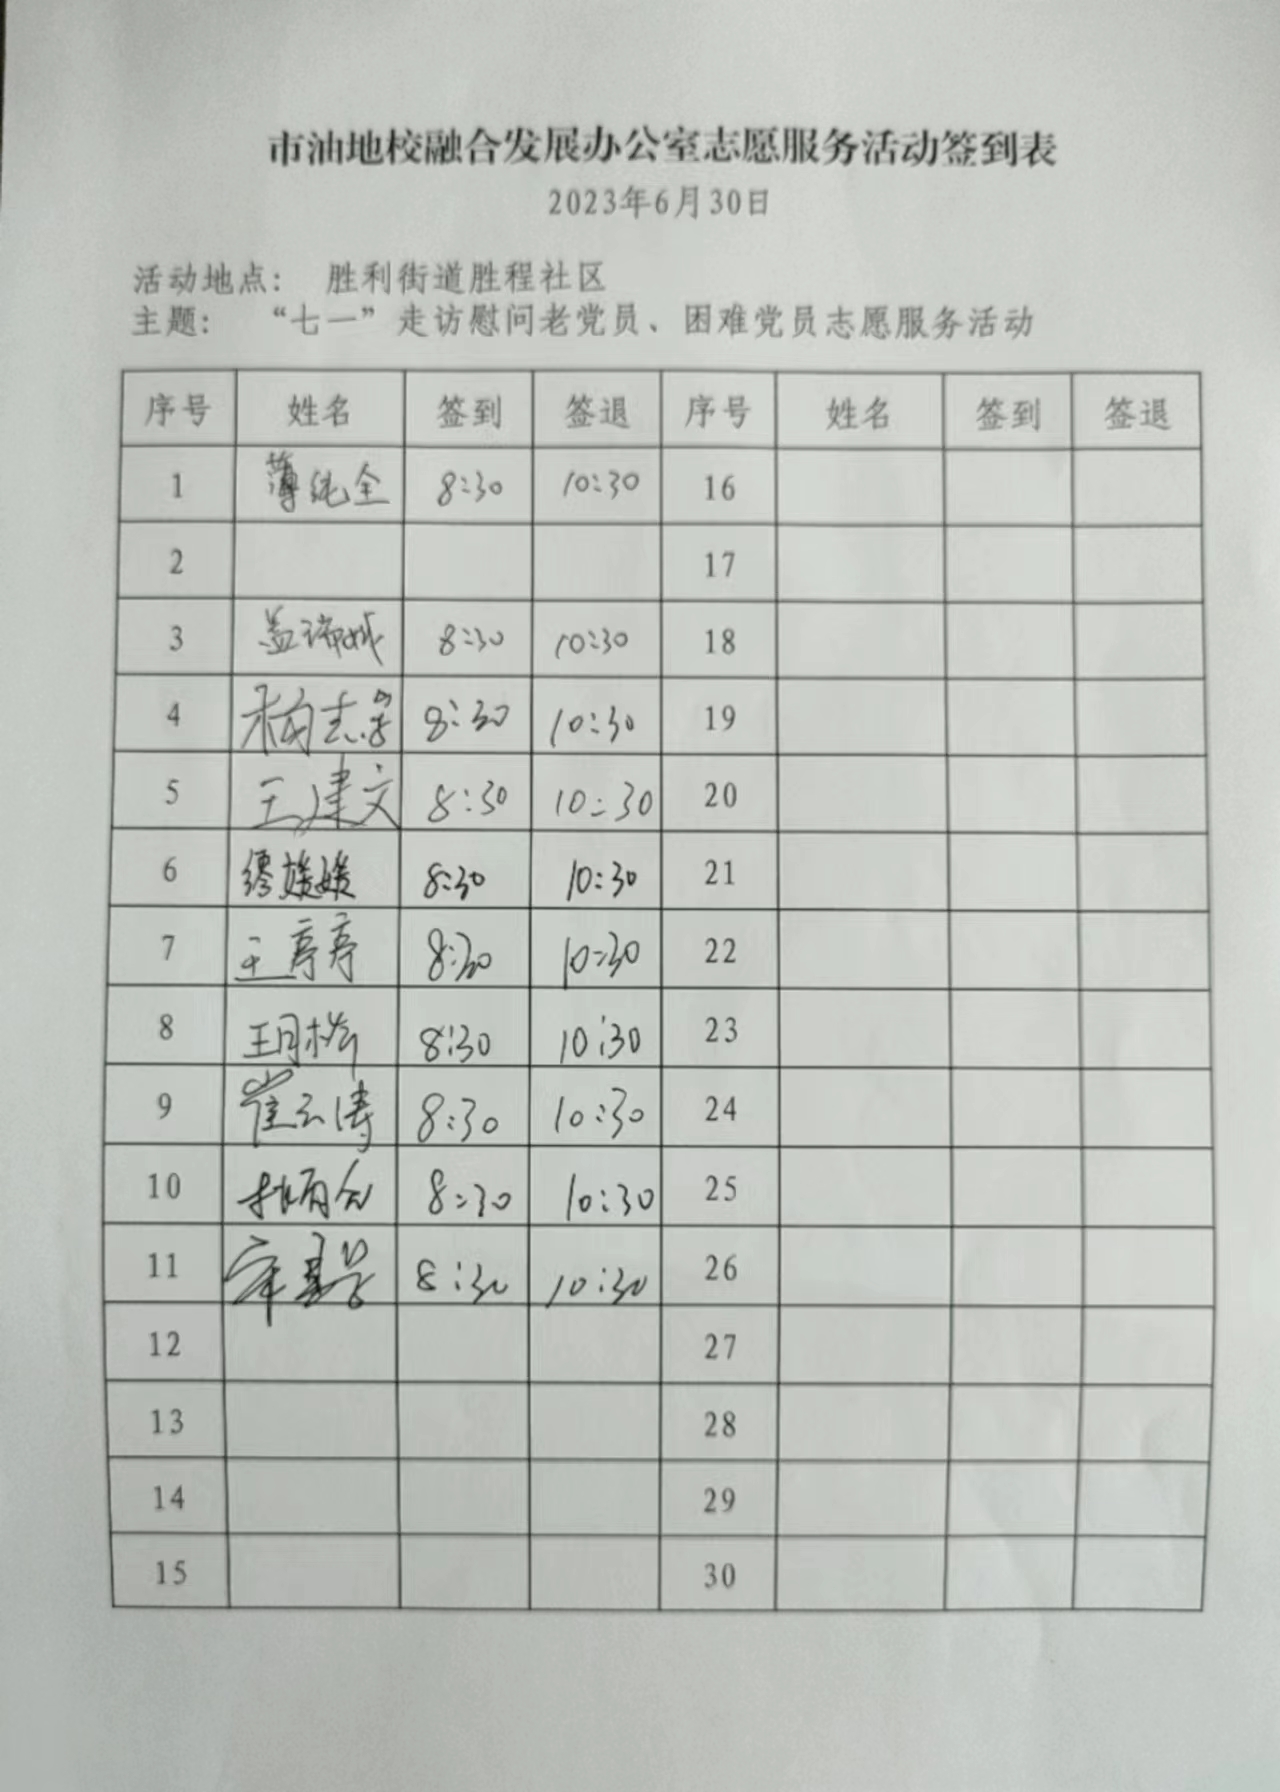 市油地校融合发展办公室志愿服务活动签到表
2023年6月30日
活动地点： 胜利街道胜程社区
主题： “七一”走访慰问老党员、困难党员志愿服务活动
序号 姓名 签到 签退 序号 姓名 签到 签退
1 薄纯全 8:30 10:30 16
2 17
3 8:30 10:30 18
4 8:30 10:30 19
5 王建文 8:30 10:30 20
6 缪媛媛 8:30 10:30 21
7 王亭亭 8:30 10:30 22
8 8:30 10:30 23
9 崔云涛 8:30 10:30 24
10 8:30 10:30 25
11 8:30 10:30 26
12 27
13 28
14 29
15 30